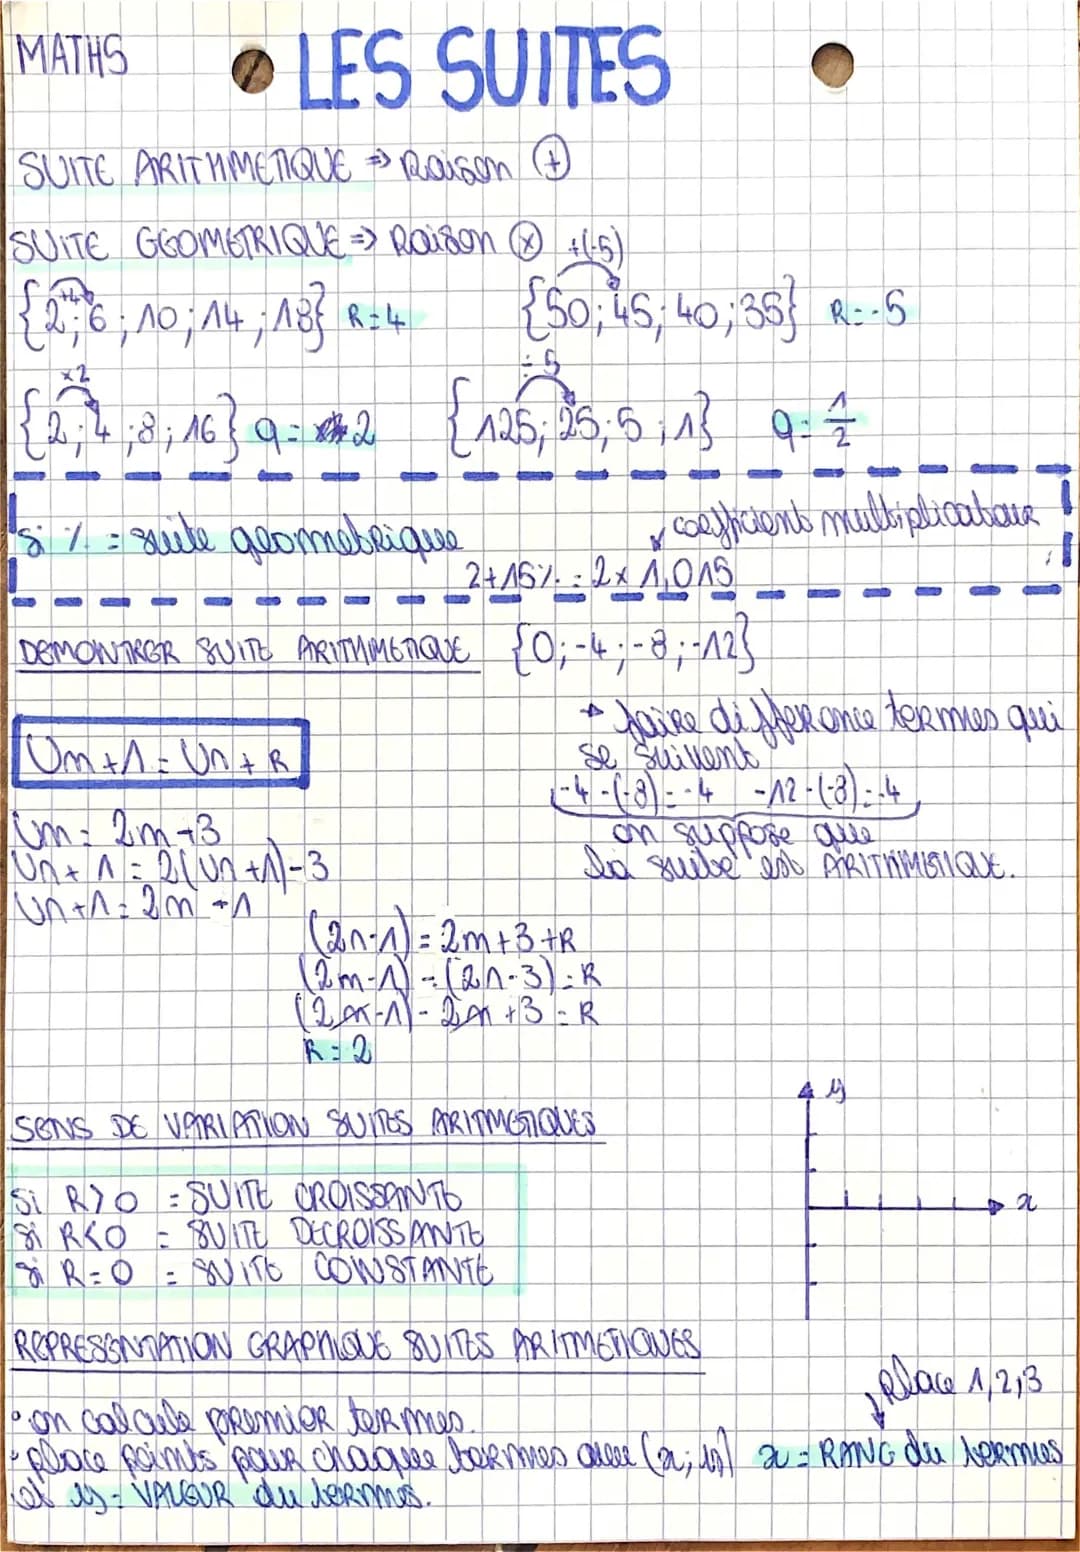 MATHS
LES SUITES
SUITE ARITHMETIQUE ⇒ Raison (+)
SUITE GEOMETRIQUE ⇒ Raison (×)
+4
{2;6;10;14;18} R=4
+(-5)
{50;45;40;35} R=-5
×2
{2;4;8;16} q= 2
÷5
{125;25;5;1} q= 1/2
Si % = suite géometrique
coefficient multiplicateur
2+15% = 2× 1,015
DEMONTRER SUITE ARITHMETIQUE {0;-4;-8;-12}
Un+1 = Un + R
→ faire différence termes qui
se suivent
-4-(-8)=-4 -12-(-8)=-4
on suppose que
la suite est ARITHMETIQUE.
Un= 2n+3
Un+1 = 2(Un+1)-3
Un+1= 2n -1
(2n-1) = 2n+3+R
(2n-1) - (2n-3) = R
(2n-1) - 2n+3 = R
R=2
SENS DE VARIATION SUITES ARITMETIQUES
Si R>0 = SUITE CROISSANTE
Si R<0 = SUITE DECROISSANTE
Si R=0 = SUITE CONSTANTE
y
x
REPRESENTATION GRAPHIQUE SUITES ARITMETIQUES
place 1,2,3
• on calcule premier termes.
• place points pour chaque termes avec (x;y) x = RANG du termes
et y = VALEUR du termes.